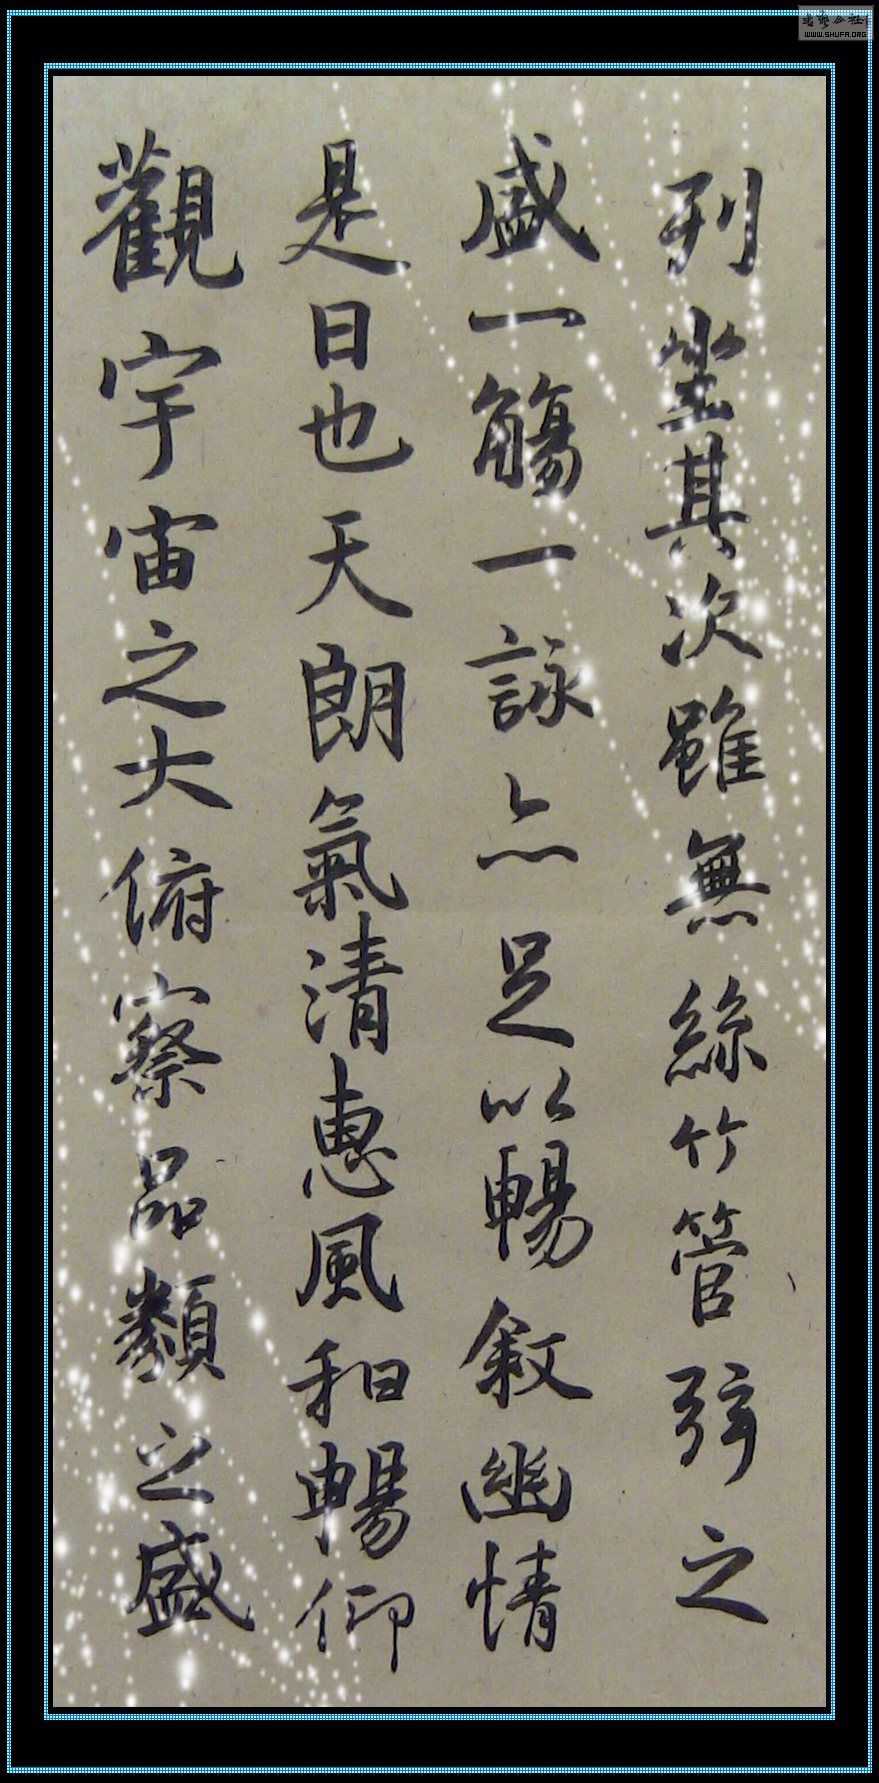 列坐其次雖無絲竹管弦之
盛一觴一詠亦足以暢叙幽情
是日也天朗氣清惠風和暢仰
觀宇宙之大俯察品類之盛
WWW.SHUFA.ORG